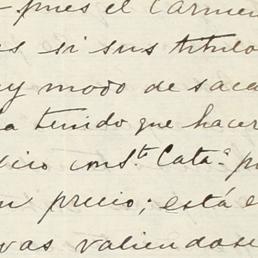 - pues el Carmen
as si sus titulo
y modo de saca
a tenido que hacer
cico const. Cata.ª p
n precio; está e
vas valiendose